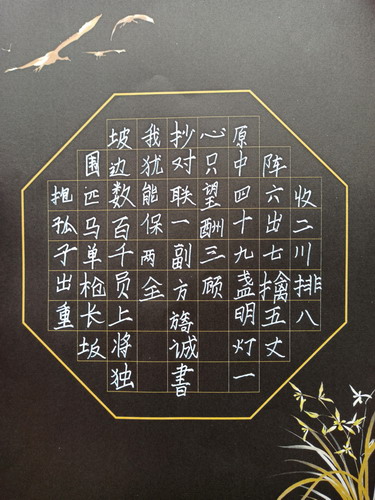 收二川排八
阵六出七擒五丈
原中四十九盏明灯一
心只望酬三顾
抄对联一副方旖诚書
我犹能保两全
坡边数百千员上将独
围匹马单枪长坂
抱孤子出重